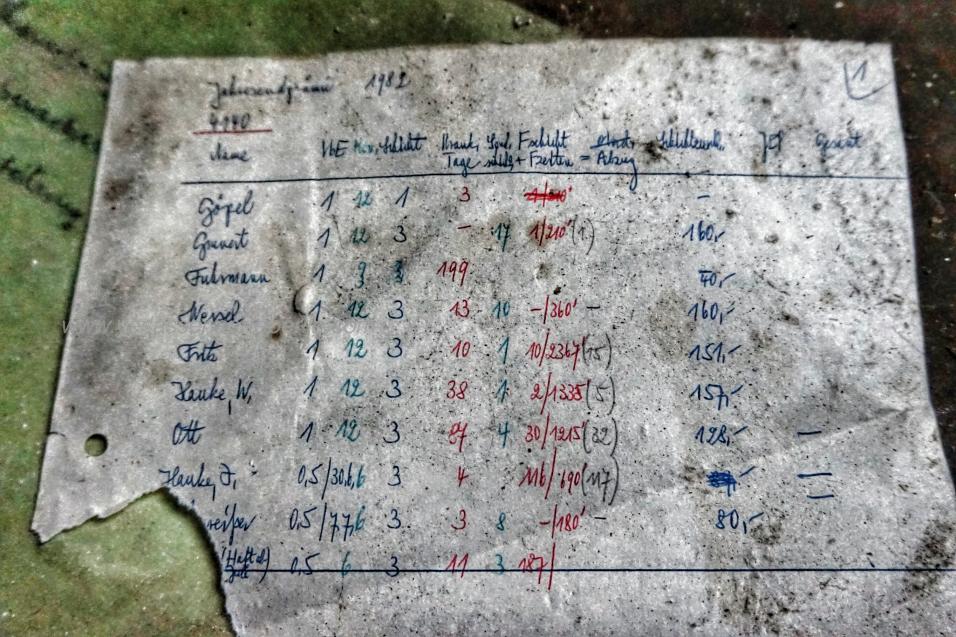 Jahresendprämie 1982
1
4240
Name VbE Mon. Schicht Krank. F.schicht Schichtprämie JEP Gesamt
Tage + F.zeiten = Abzug
Göpel 1 12 1 3 -
Grunert 1 12 3 - 17 1/210' (1) 160,-
Fuhrmann 1 9 3 199 40,-
Wessel 1 12 3 13 10 -/360' - 160,-
Fritz 1 12 3 10 1 10/2367' (15) 151,-
Hauke, W. 1 12 3 38 1 2/1335' (5) 157,-
Ott 1 12 3 4 30/1215' (32) 128,- —
Hauke, J. 0,5/30.6. 6 3 4 116/690' (117)
0,5/7.7. 6 3 3 8 -/180' - 80,-
0,5 6 3 11 3 187/